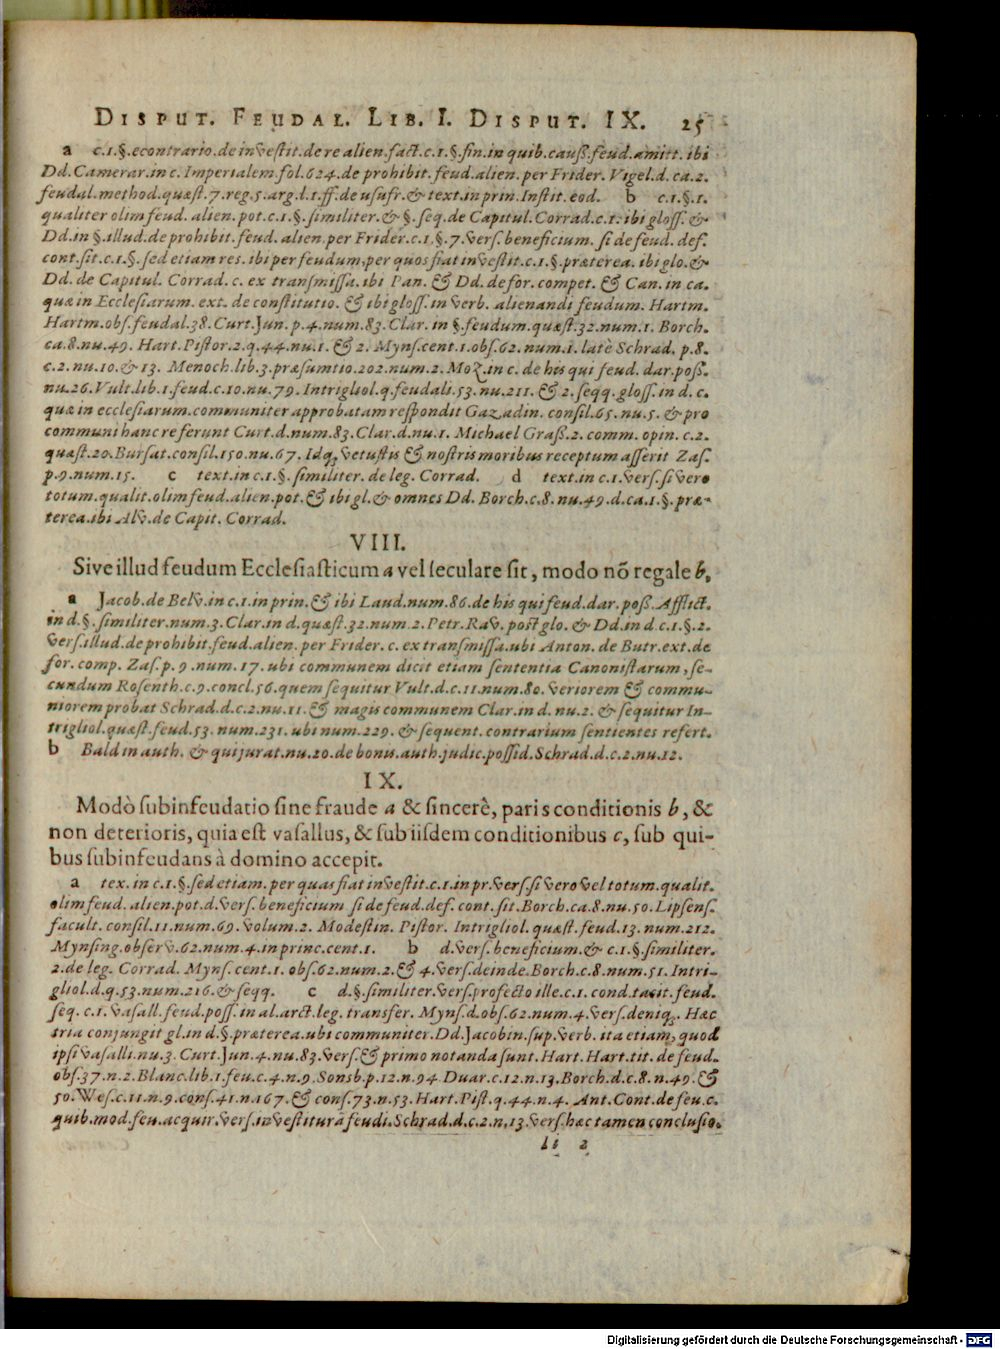 DISPUT. FEUDAL. LIB. I. DISPUT. IX. 25
a c.1.§.econtrario.de inveſtit.de re alien.fact.c.1.§.fin.in quib.cauſſ.feud.amitt.ibi
Dd.Camerar.in c.Imperialem.fol.624.de prohibit.feud.alien.per Frider.Vigel.d.ca.2.
feudal.method.quæſt.7.reg.5.arg.l.1.ff.de uſufr.& text.in prin.Inſtit.eod. b c.1.§.1.
qualiter olim feud. alien.pot.c.1.§.ſimiliter.& §.ſeq.de Capitul.Corrad.c.1.ibi gloſſ.&
Dd.in §.illud.de prohibit.feud.alien.per Frider.c.1.§.7.Verſ.beneficium. ſi de feud. def.
cont.ſit.c.1.§.ſed etiam res.ibi per feudum, per quos fiat inveſtit.c.1.§.præterea.ibi glo.&
Dd. de Capitul. Corrad. c. ex tranſmiſſa. ibi Pan. & Dd.de for. compet. & Can. in ca.
quæ in Eccleſiarum. ext. de conſtitutio. & ibi gloſſ.in verb. alienandi feudum. Hartm.
Hartm.obſ.feudal.38. Curt.Jun. p.4.num.83. Clar. in §.feudum.quæſt.32.num.1. Borch.
ca.8.nu.49. Hart.Piſtor.2.q.44.nu.1. & 2. Mynſ.cent.1.obſ.62. num.1.latè Schrad. p.8.
c.2.nu.10.& 13. Menoch.lib.3.præſumtio.202.num.2. Moz.in c. de his qui feud. dar.poſſ.
nu.26.Vult.lib.1.feud.c.10.nu.79. Intrigliol.q.feudali.53.nu.211. & 2.ſeqq.gloſſ.in d. c.
quæ in eccleſiarum.communiter approbatam reſpondit Gazadin. conſil.65.nu.5. & pro
communi hanc referunt Curt.d.num.83.Clar.d.nu.1. Michael Graſſ.2. comm. opin. c.2.
quæſt.20.Burſat.conſil.150.nu.67. Idq; vetuſtis & noſtris moribus receptum aſſerit Zaſ.
p.9.num.15. c text.in c.1.§.ſimiliter. de leg. Corrad. d text.in c.1.verſ.ſi vero
totum.qualit.olim feud.alien.pot.& ibi gl.& omnes Dd. Borch.c.8. nu.49.d.ca.1.§.præ-
terea.ibi Alv.de Capit. Corrad.
VIII.
Sive illud feudum Eccleſiaſticum a vel ſeculare ſit, modo nõ regale b,
a Jacob.de Belv.in c.1.in prin.& ibi Laud.num.86.de his qui feud.dar.poſſ.Afflict.
in d.§.ſimiliter.num.3.Clar.in d.quæſt.32.num.2.Petr.Rav.poſt glo. & Dd.in d.c.1.§.2.
verſ.illud.de prohibit.feud.alien. per Frider. c. ex tranſmiſſa.ubi Anton. de Butr.ext.de
for. comp. Zaſ.p. 9 .num.17. ubi communem dicit etiam ſententia Canoniſtarum, ſe-
cundum Roſenth.c.9.concl.56.quem ſequitur Vult.d.c.11.num.80. veriorem & commu-
niorem probat Schrad.d.c.2.nu.11.& magis communem Clar.in d. nu.2. & ſequitur In-
trigliol.quæſt.feud.53.num.231.ubi num.229. & ſequent.contrarium ſentientes refert.
b Bald in auth. & qui jurat.nu.20.de bonu.auth.judic.poſſid.Schrad.d.c.2.nu.12.
IX.
Modò ſubinfeudatio ſine fraude a & ſincerè, paris conditionis b, &
non deterioris, quia eſt vaſallus, & ſub iiſdem conditionibus c, ſub qui-
bus ſubinfeudans à domino accepit.
a tex. in c.1.§.ſed etiam.per quas fiat inveſtit.c.1.in pr.verſ.ſi vero vel totum.qualit.
olim feud. alien.pot.d.verſ.beneficium ſi de feud.def. cont.ſit.Borch.ca.8.nu.50.Lipſenſ.
facult. conſil.11.num.69. volum.2. Modeſtin. Piſtor. Intrigliol. quæſt.feud.13.num.212.
Mynſing.obſerv.62.num.4.in princ.cent.1. b d.verſ.beneficium.& c.1.§.ſimiliter.
2.de leg. Corrad. Mynſ. cent.1. obſ.62.num.2.& 4.verſ.deinde.Borch.c.8.num.51. Intri-
gliol.d.q.53.num.216.& ſeqq. c d.§.ſimiliter.verſ.profecto ille.c.1. cond.tacit.feud.
ſeq. c.1. vaſall.feud.poſſ.in al.arct.leg. transfer. Mynſ.d.obſ.62.num.4.verſ.deniq;. Hæc
tria conjungit gl.in d.§.præterea.ubi communiter.Dd.Jacobin.ſup.verb. ita etiam, quod
ipſi vaſalli.nu.3. Curt.Jun.4.nu.83.verſ.& primo notanda ſunt. Hart.Hart.tit. de feud.
obſ.37.n.2.Blanc.lib.1.feu.c.4.n.9.Sonsb.p.12.n.94 Duar.c.12.n.13.Borch.d.c.8.n.49.&
50.Weſ.c.11.n.9.conſ.41.n.167.& conſ.73.n.53.Hart.Piſt.q.44.n.4. Ant.Cont.de feu.c.
quib.mod.feu.acquir.verſ.inveſtiturâ feudi.Schrad.d.c.2.n.13.verſ.hæc tamen concluſio.
Ii 2
Digitalisierung gefördert durch die Deutsche Forschungsgemeinschaft - DFG